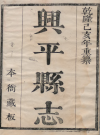 乾隆己亥年重纂
興平縣志
本衙藏板